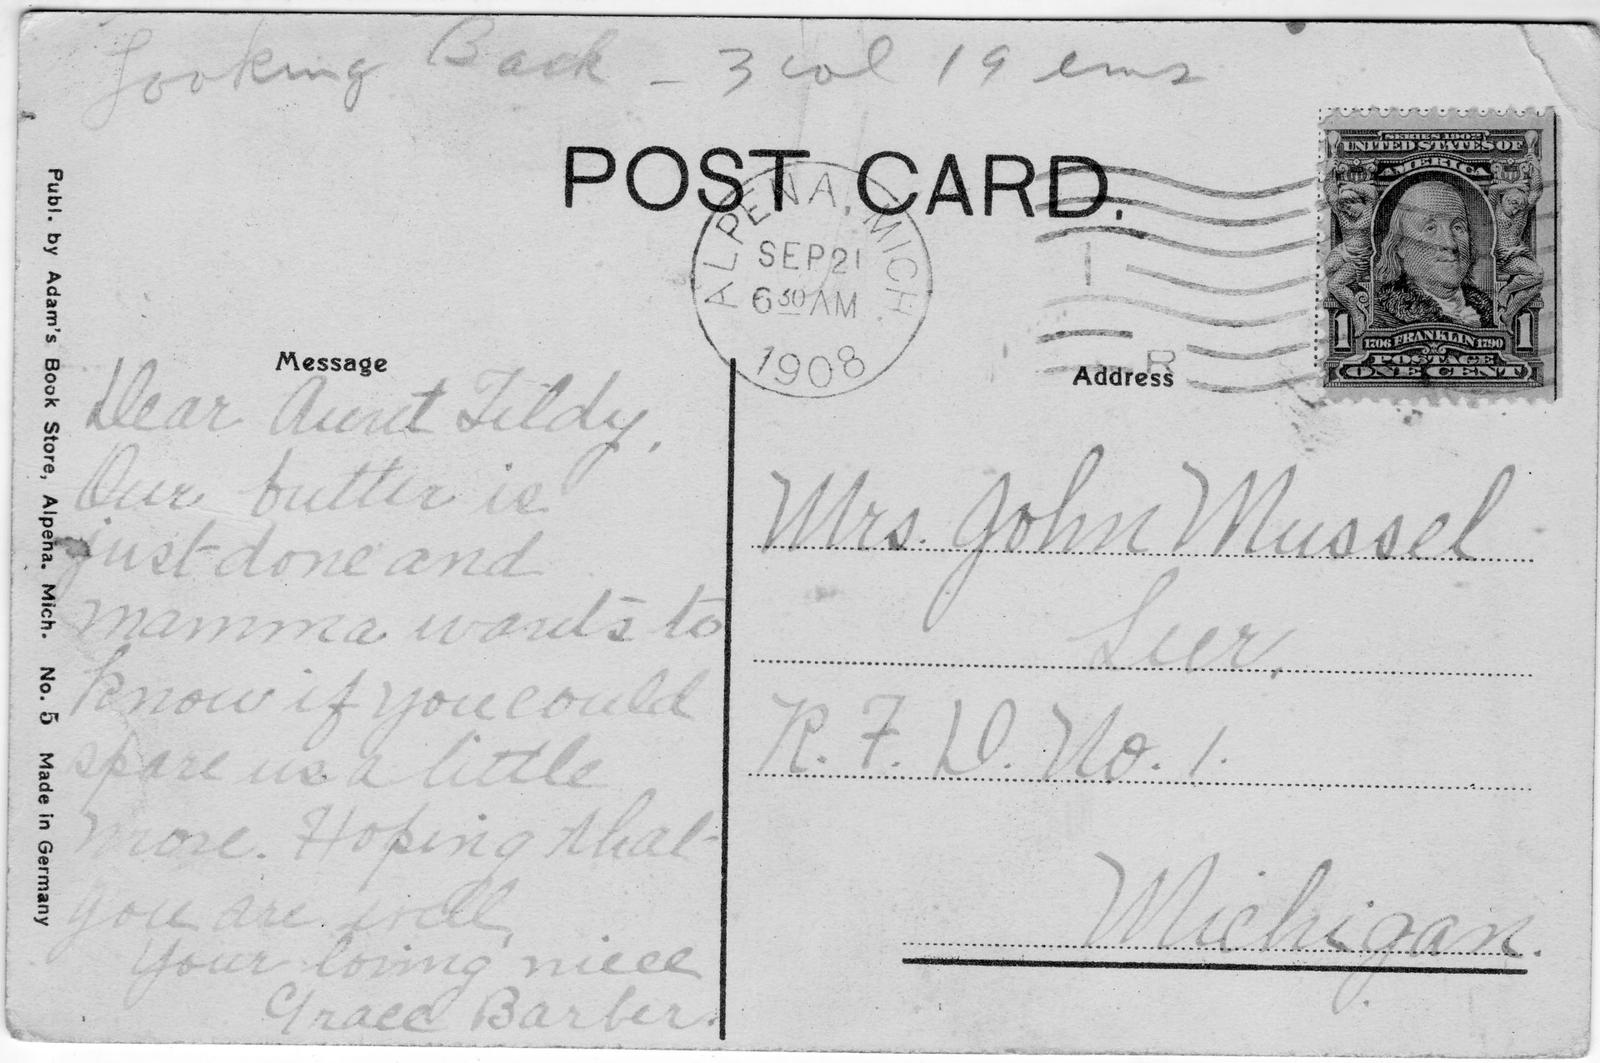 Looking Back - 3 col 19 ems
POST CARD.
ALPENA, MICH.
SEP 21
6 30 AM
1908
R
SERIES 1902
UNITED STATES OF
AMERICA
1 1
1706 FRANKLIN 1790
POSTAGE
ONE CENT
Publ. by Adam's Book Store, Alpena. Mich. No. 5 Made in Germany
Message
Dear Aunt Tildy,
Our butter is
just done and
mamma wants to
know if you could
spare us a little
more. Hoping that
you are well,
Your loving niece
Grace Barber.
Address
Mrs. John Mussel
Leer,
R. F. D. No. 1.
Michigan.